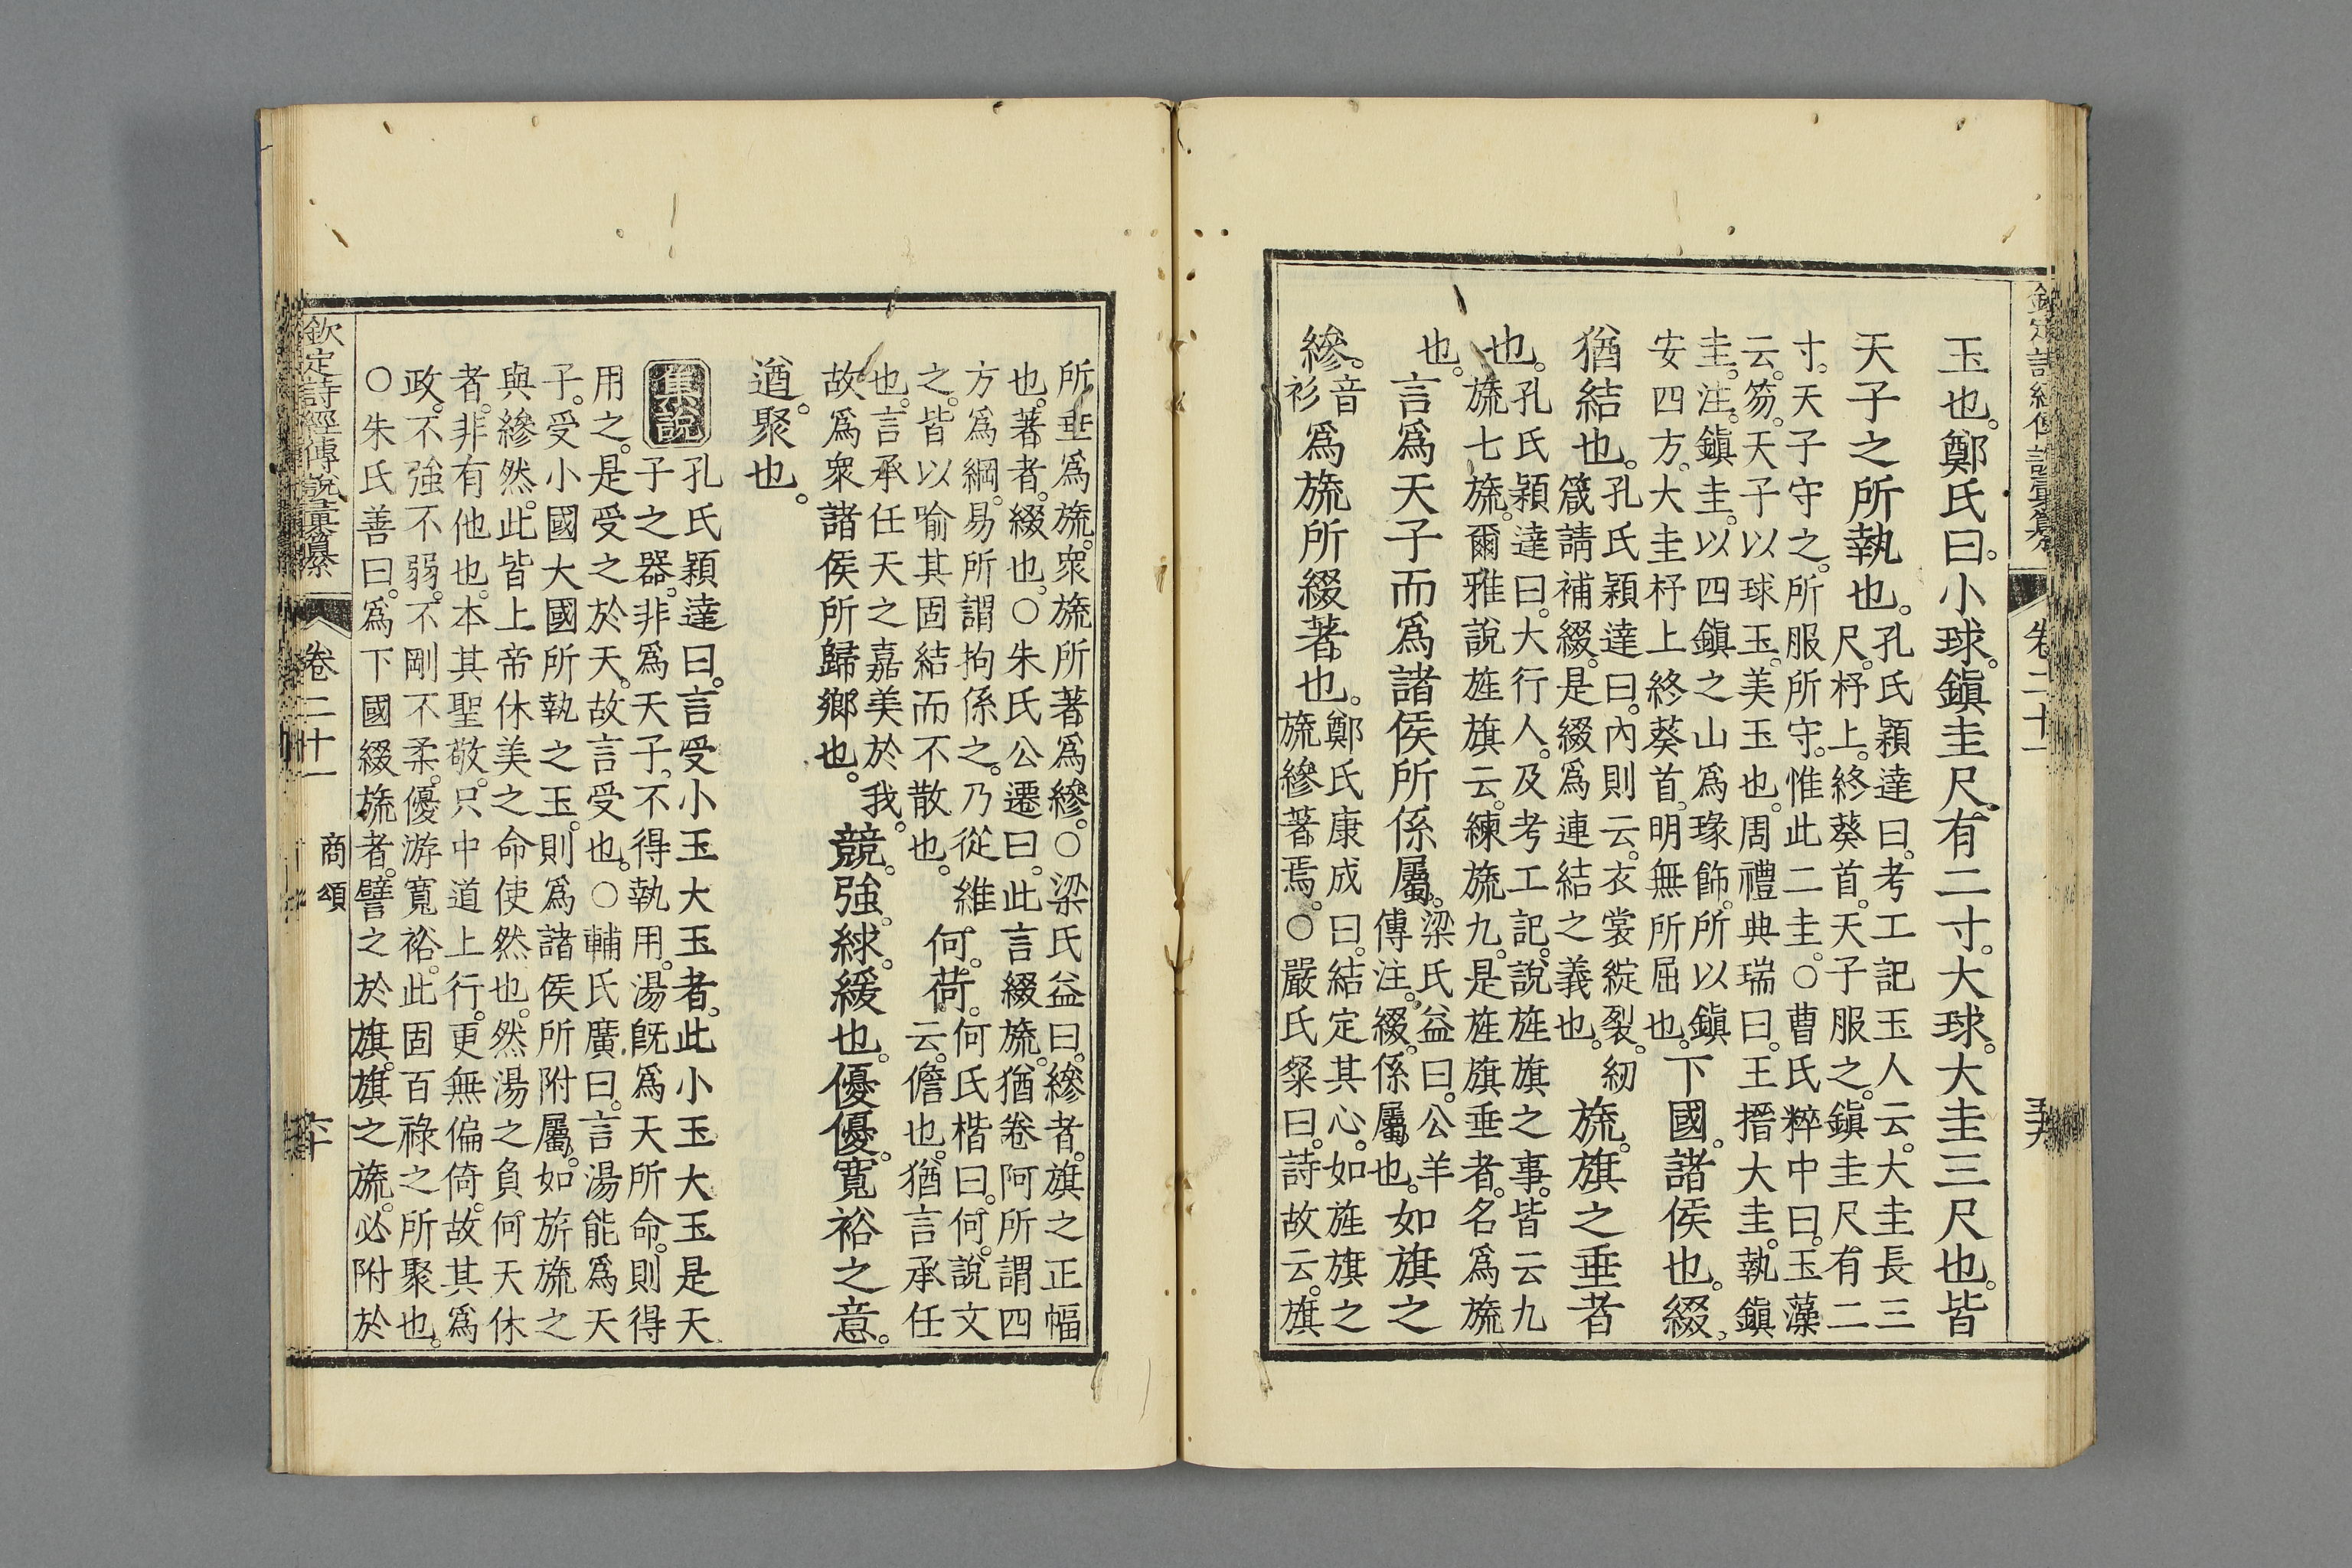 欽定詩經傳說彙纂
卷二十一
玉也。鄭氏曰。小球。鎭圭尺有二寸。大球。大圭三尺也。皆
天子之所執也。孔氏穎達曰。考工記玉人云。大圭長三
尺。杼上。終葵首。天子服之。鎭圭尺有二
寸。天子守之。所服所守。惟此二圭。○曹氏粹中曰。玉藻
云。笏。天子以球玉。美玉也。周禮典瑞曰。王搢大圭。執鎭
圭。注。鎭圭。以四鎭之山爲瑑飾。所以鎭
安四方。大圭杼上終葵首。明無所屈也。下國。諸侯也。綴。
猶結也。孔氏穎達曰。內則云。衣裳綻裂。紉
箴請補綴。是綴爲連結之義也。旒。旗之垂者
也。孔氏穎達曰。大行人。及考工記。說旌旗之事。皆云九
旒七旒。爾雅說旌旗云。練旒九。是旌旗垂者。名爲旒
也。言爲天子而爲諸侯所係屬。梁氏益曰。公羊
傳注。綴。係屬也。如旗之
縿。音
衫爲旒所綴著也。鄭氏康成曰。結定其心。如旌旗之
旒縿著焉。○嚴氏粲曰。詩故云。旗
所垂爲旒。衆旒所著爲縿。○梁氏益曰。縿者。旗之正幅
也。著者。綴也。○朱氏公遷曰。此言綴旒。猶卷阿所謂四
方爲綱。易所謂拘係之。乃從維
之。皆以喻其固結而不散也。何。荷。何氏楷曰。何。說文
云。儋也。猶言承任
也。言承任天之嘉美於我。
故爲衆諸侯所歸鄉也。競。強。絿。緩也。優優。寬裕之意。
遒。聚也。
集說
孔氏穎達曰。言受小玉大玉者。此小玉大玉是天
子之器。非爲天子。不得執用。湯旣爲天所命。則得
用之。是受之於天。故言受也。○輔氏廣曰。言湯能爲天
子。受小國大國所執之玉。則爲諸侯所附屬。如旂旒之
與縿然。此皆上帝休美之命使然也。然湯之負何天休
者。非有他也。本其聖敬。只中道上行。更無偏倚。故其爲
政。不強不弱。不剛不柔。優游寬裕。此固百祿之所聚也。
○朱氏善曰。爲下國綴旒者。譬之於旗。旗之旒。必附於
欽定詩經傳說彙纂
卷二十一
商頌
六十